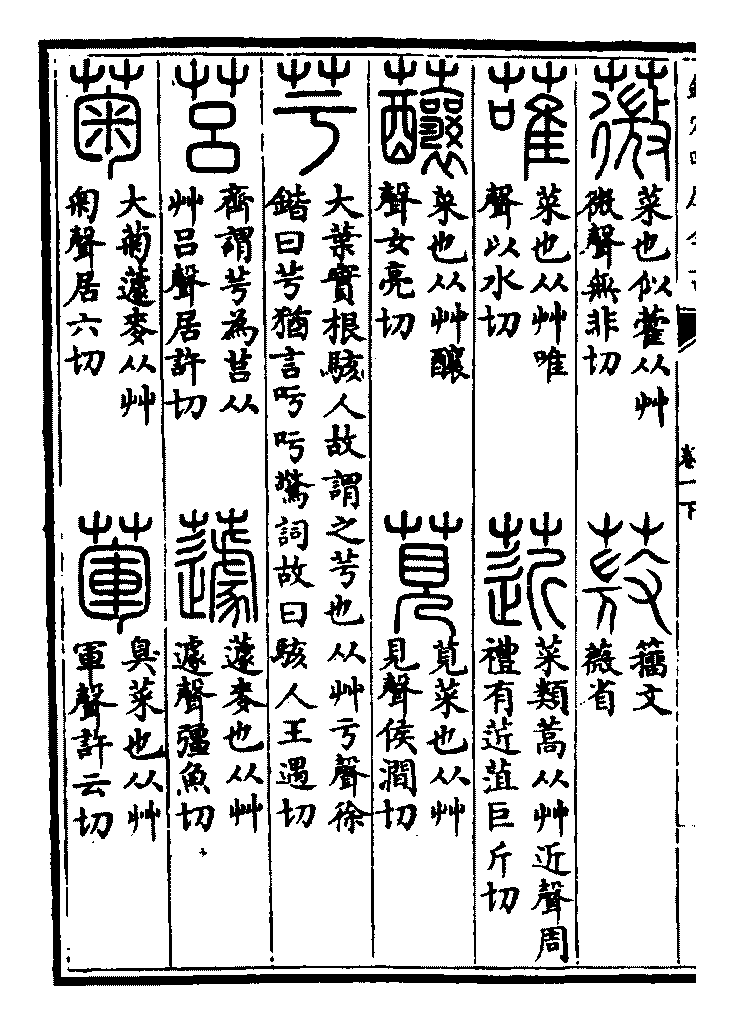 卷一下
薇
菜也似藿从艸
微聲無非切
籀文
薇省
蓶
菜也从艸唯
聲以水切
菦
菜類蒿从艸近聲周
禮有菦菹巨斤切
䖆
菜也从艸釀
聲女亮切
莧
莧菜也从艸
見聲侯澗切
芌
大葉實根駭人故謂之芌也从艸亏聲徐
鍇曰芌猶言吁吁驚詞故曰駭人王遇切
莒
齊謂芌為莒从
艸呂聲居許切
蘧
蘧麥也从艸
遽聲彊魚切
菊
大菊蘧麥从艸
匊聲居六切
葷
臭菜也从艸
軍聲許云切